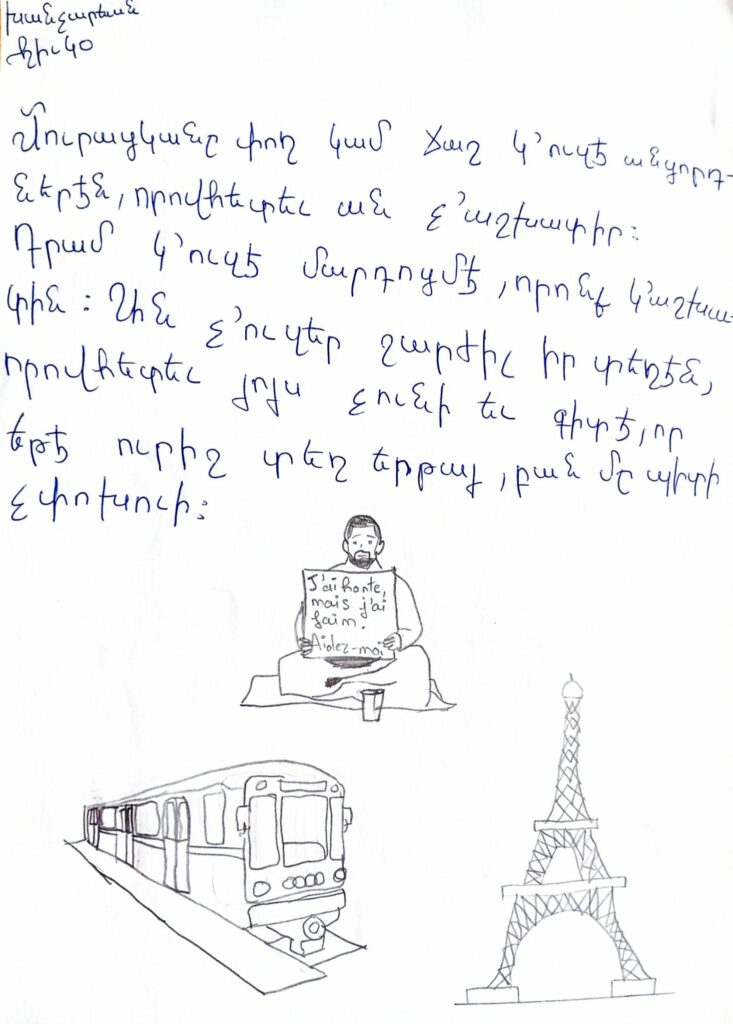 խանչարեան
Քիւ 40
Մուրացկանը փող կամ ճաշ կ՚ուզէ անցորդ-
ներէն, որովհետեւ ան չ՚աշխատիր։
Դրամ կ՚ուզէ մարդոցմէ, որոնք կ՚աշխա-
տին։ Չին չ՚ուզեր շարժիլ իր տեղէն,
որովհետեւ յոյս չունի եւ գիտէ, որ
եթէ ուրիշ տեղ երթայ, բան մը պիտի
չփոխուի։
J'ai honte,
mais j'ai
faim.
Aidez-moi